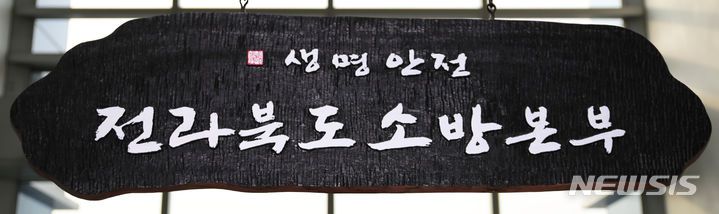 생명안전
전라북도소방본부
NEWSIS